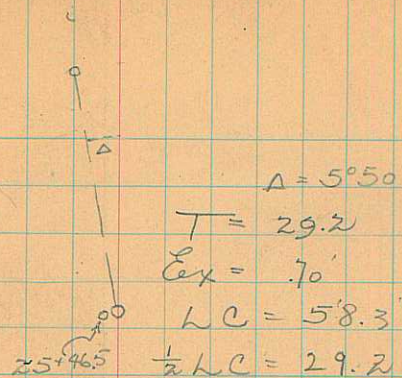 Δ
Δ = 5°50
T = 29.2
Ex = .70'
LC = 58.3'
25+46.5
½ LC = 29.2